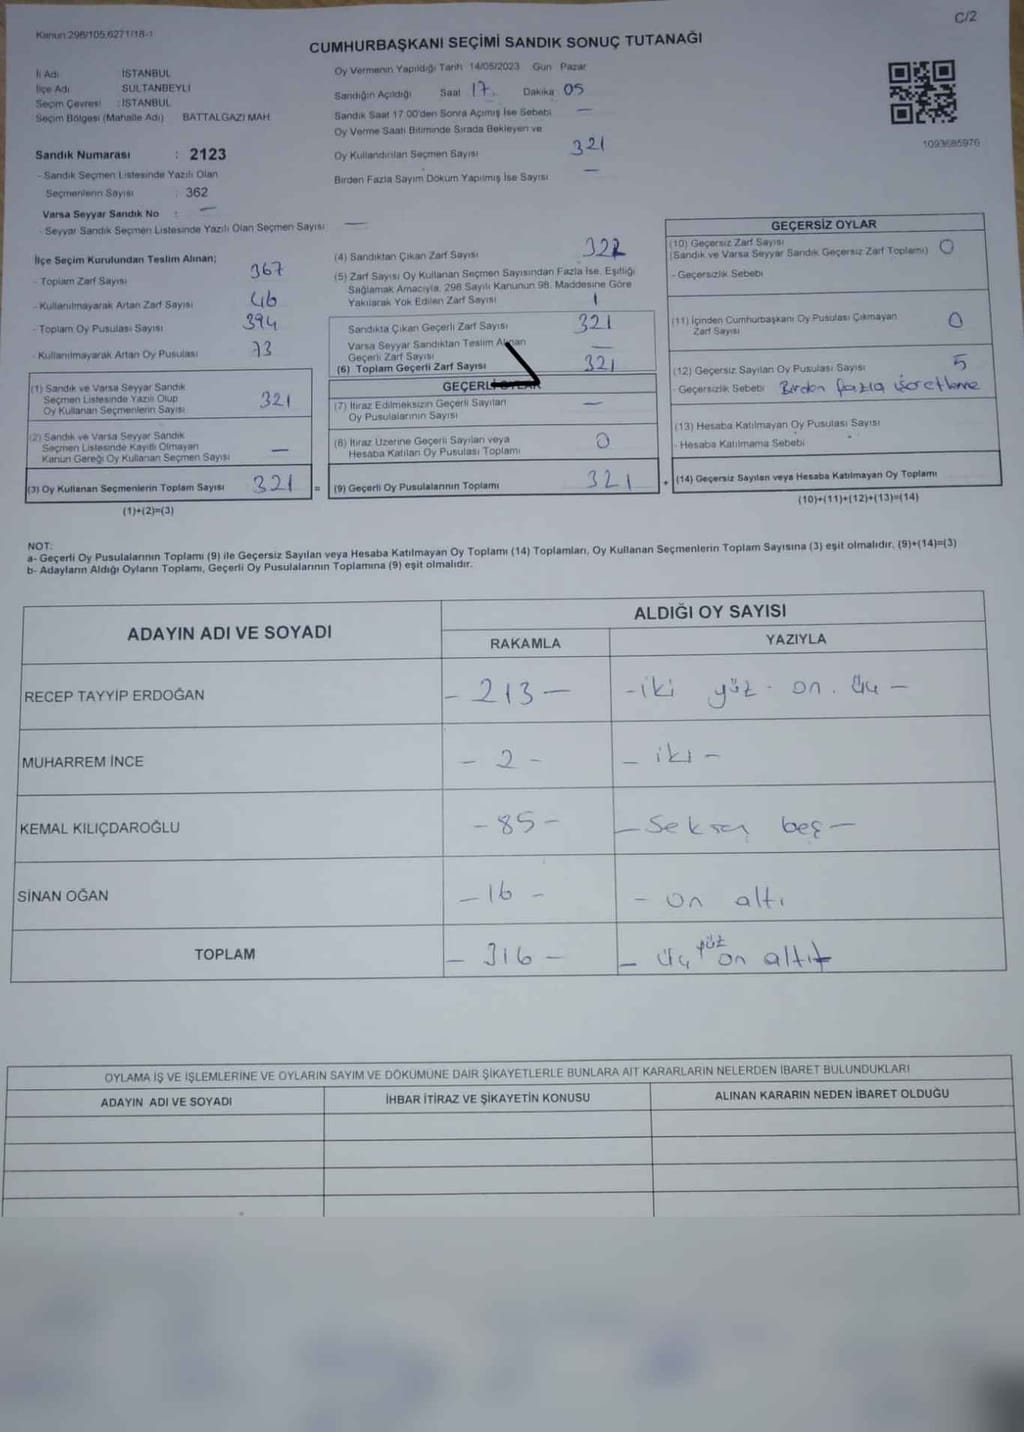 C/2
Kanun:298/105,6271/18-1
CUMHURBAŞKANI SEÇİMİ SANDIK SONUÇ TUTANAĞI
İl Adı : İSTANBUL
İlçe Adı : SULTANBEYLİ
Seçim Çevresi : İSTANBUL
Seçim Bölgesi (Mahalle Adı) BATTALGAZİ MAH.
Sandık Numarası : 2123
- Sandık Seçmen Listesinde Yazılı Olan
Seçmenlerin Sayısı : 362
Varsa Seyyar Sandık No : —
- Seyyar Sandık Seçmen Listesinde Yazılı Olan Seçmen Sayısı —
Oy Vermenin Yapıldığı Tarih 14/05/2023 Gün Pazar
Sandığın Açıldığı Saat 17. Dakika 05
Sandık Saat 17:00'den Sonra Açılmış İse Sebebi —
Oy Verme Saati Bitiminde Sırada Bekleyen ve
Oy Kullandırılan Seçmen Sayısı 321
Birden Fazla Sayım Döküm Yapılmış İse Sayısı —
1093685976
İlçe Seçim Kurulundan Teslim Alınan;
- Toplam Zarf Sayısı 367
- Kullanılmayarak Artan Zarf Sayısı 46
- Toplam Oy Pusulası Sayısı 394
- Kullanılmayarak Artan Oy Pusulası 73
(1) Sandık ve Varsa Seyyar Sandık
Seçmen Listesinde Yazılı Olup
Oy Kullanan Seçmenlerin Sayısı 321
(2) Sandık ve Varsa Seyyar Sandık
Seçmen Listesinde Kayıtlı Olmayan
Kanun Gereği Oy Kullanan Seçmen Sayısı —
(3) Oy Kullanan Seçmenlerin Toplam Sayısı 321 =
(1)+(2)=(3)
(4) Sandıktan Çıkan Zarf Sayısı 322
(5) Zarf Sayısı Oy Kullanan Seçmen Sayısından Fazla İse, Eşitliği
Sağlamak Amacıyla, 298 Sayılı Kanunun 98. Maddesine Göre
Yakılarak Yok Edilen Zarf Sayısı 1
Sandıkta Çıkan Geçerli Zarf Sayısı 321
Varsa Seyyar Sandıktan Teslim Alınan
Geçerli Zarf Sayısı —
(6) Toplam Geçerli Zarf Sayısı 321
GEÇERLİ OYLAR
(7) İtiraz Edilmeksizin Geçerli Sayılan
Oy Pusulalarının Sayısı —
(8) İtiraz Üzerine Geçerli Sayılan veya
Hesaba Katılan Oy Pusulası Toplamı 0
(9) Geçerli Oy Pusulalarının Toplamı 321 +
GEÇERSİZ OYLAR
(10) Geçersiz Zarf Sayısı
(Sandık ve Varsa Seyyar Sandık Geçersiz Zarf Toplamı) 0
- Geçersizlik Sebebi
(11) İçinden Cumhurbaşkanı Oy Pusulası Çıkmayan
Zarf Sayısı 0
(12) Geçersiz Sayılan Oy Pusulası Sayısı 5
- Geçersizlik Sebebi Birden fazla işaretleme
(13) Hesaba Katılmayan Oy Pusulası Sayısı
- Hesaba Katılmama Sebebi
(14) Geçersiz Sayılan veya Hesaba Katılmayan Oy Toplamı
(10)+(11)+(12)+(13)=(14)
NOT:
a- Geçerli Oy Pusulalarının Toplamı (9) ile Geçersiz Sayılan veya Hesaba Katılmayan Oy Toplamı (14) Toplamları, Oy Kullanan Seçmenlerin Toplam Sayısına (3) eşit olmalıdır. (9)+(14)=(3)
b- Adayların Aldığı Oyların Toplamı, Geçerli Oy Pusulalarının Toplamına (9) eşit olmalıdır.
ADAYIN ADI VE SOYADI
ALDIĞI OY SAYISI
RAKAMLA YAZIYLA
RECEP TAYYİP ERDOĞAN – 213 – – iki yüz on üç –
MUHARREM İNCE – 2 – – iki –
KEMAL KILIÇDAROĞLU – 85 – – Seksen beş –
SİNAN OĞAN – 16 – – on altı
TOPLAM – 316 – – üç yüz on altı
OYLAMA İŞ VE İŞLEMLERİNE VE OYLARIN SAYIM VE DÖKÜMÜNE DAİR ŞİKAYETLERLE BUNLARA AİT KARARLARIN NELERDEN İBARET BULUNDUKLARI
ADAYIN ADI VE SOYADI İHBAR İTİRAZ VE ŞİKAYETİN KONUSU ALINAN KARARIN NEDEN İBARET OLDUĞU